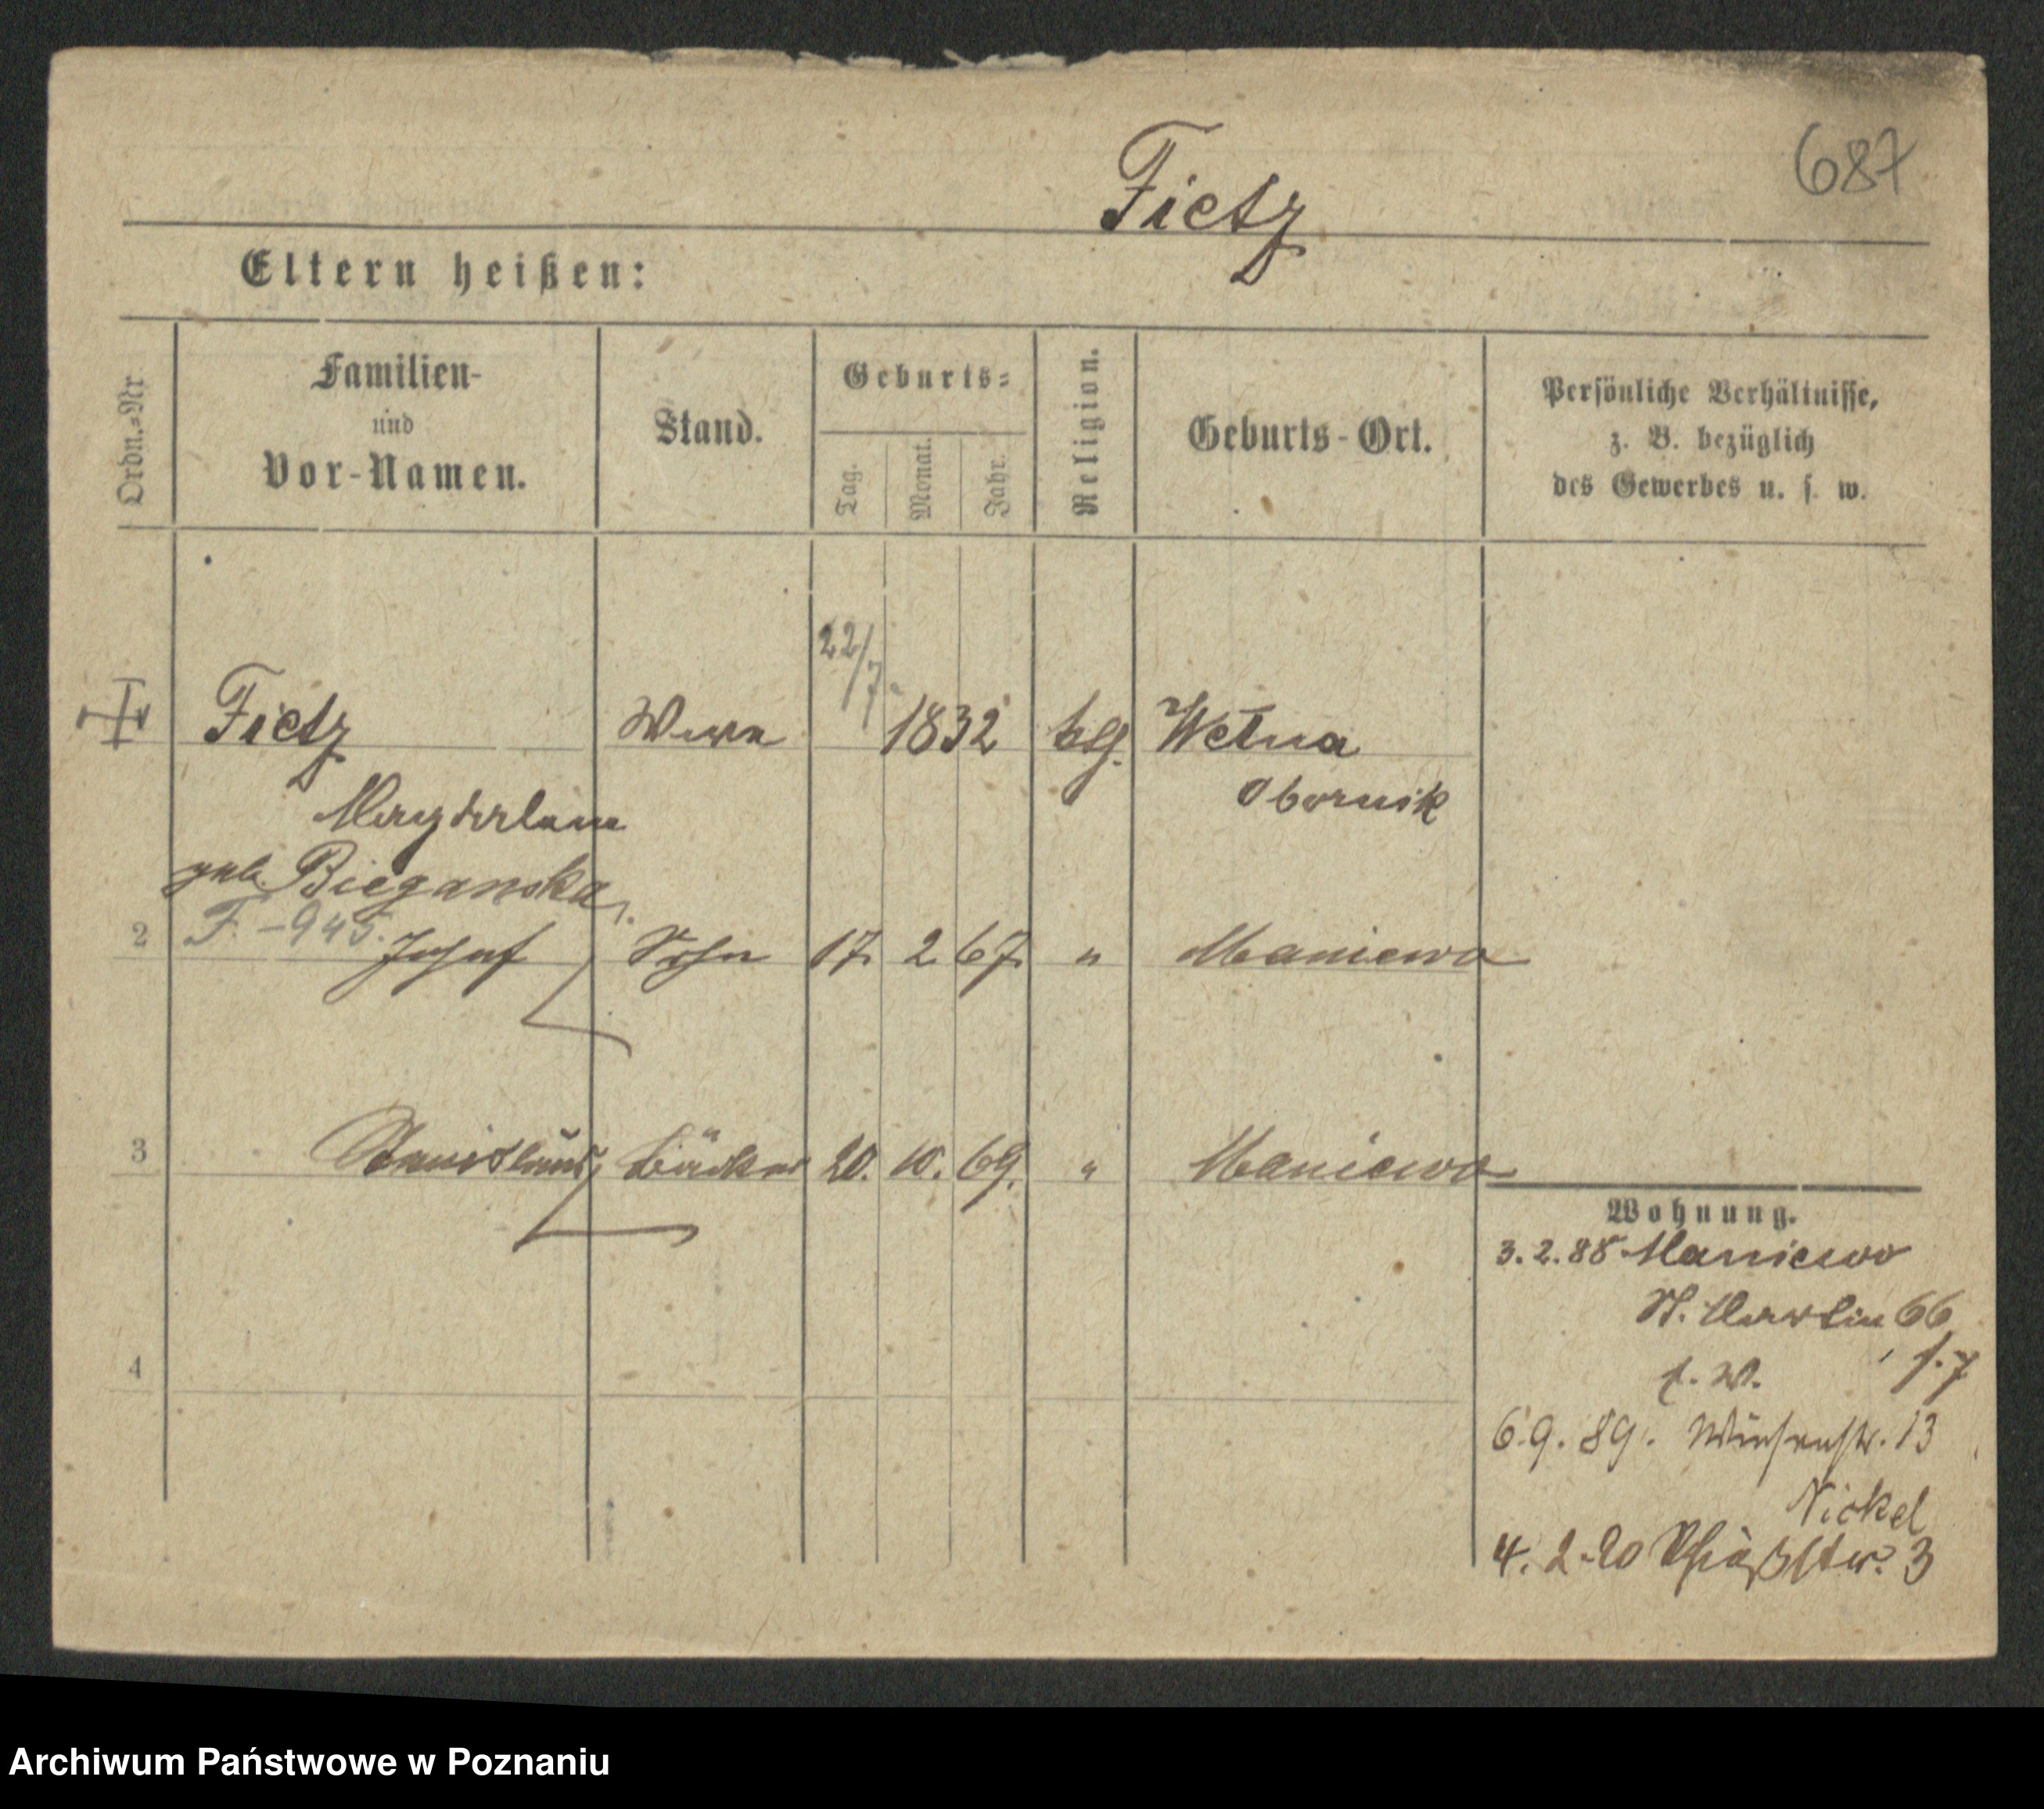 687
Fietz
Eltern heißen:
Ordn.=Nr.
Familien-
und
Vor-Namen.
Stand.
Geburts=
Tag.
Monat.
Jahr.
Religion.
Geburts-Ort.
Persönliche Verhältnisse,
z. B. bezüglich
des Gewerbes u. s. w.
22/7.
Fietz 1832 Wełna
Magdalena Obornik
geb. Bieganska
F. -945.
2 Josef Sohn 17. 2 67. " Maniewo
3 Stanislaus Bäcker 20. 10. 69. " Maniewo
4
Wohnung.
3.2.88 Maniewo
St. Martin 66
6.9.89. 13
Nickel
4. 2. 90 3
Archiwum Państwowe w Poznaniu